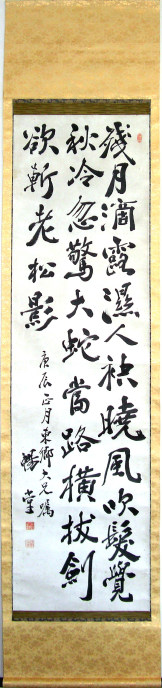 殘月滴露濕人袂曉風吹髮覺
秋冷忽驚大蛇當路橫拔劍
欲斬老松影
庚辰正月東鄉大兄囑